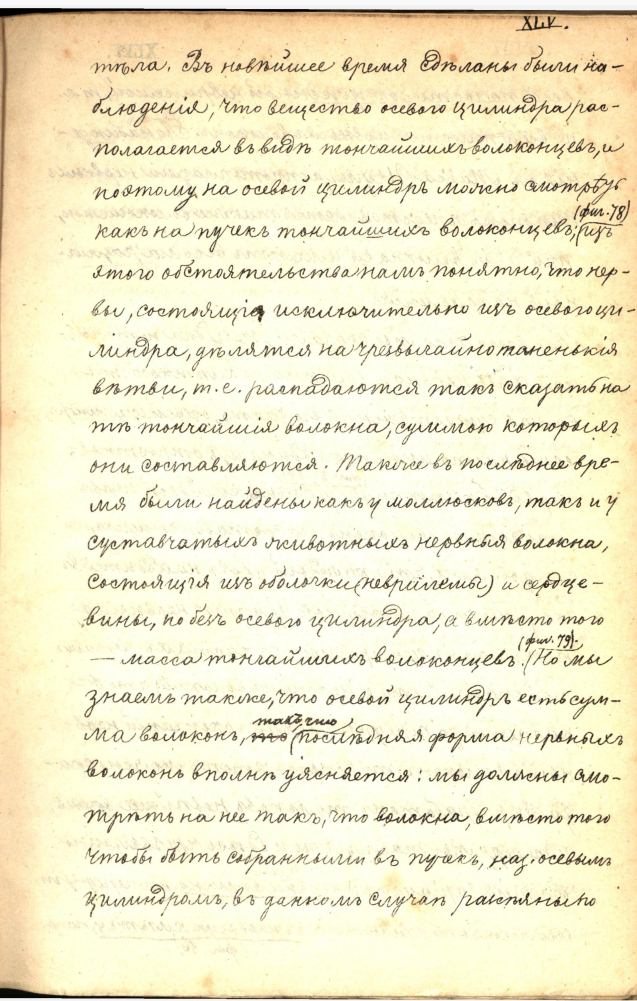 XLV.
тѣла. Въ новѣйшее время сдѣланы были на-
блюденія, что вещество осевого цилиндра рас-
полагается въ видѣ тончайшихъ волоконцевъ, и
поэтому на осевой цилиндръ можно смотрѣть
какъ на пучекъ тончайшихъ волоконцевъ; (фиг. 78) (изъ
этого обстоятельства намъ понятно, что нер-
вы, состоящіе исключительно изъ осевого ци-
линдра, дѣлятся на чрезвычайно тоненькія
вѣтви, т.е. распадаются такъ сказать на
тѣ тончайшія волокна, суммою которыхъ
они составляются. Также въ послѣднее вре-
мя были найдены какъ у моллюсковъ, такъ и у
суставчатыхъ животныхъ нервныя волокна,
состоящія изъ оболочки (неврилемы) и сердце-
вины, но безъ осевого цилиндра, а вмѣсто того
— масса тончайшихъ волоконцевъ. (фиг. 79). (Но мы
знаемъ также, что осевой цилиндръ есть сум-
ма волоконъ, такъ что (послѣдняя форма нервныхъ
волоконъ вполнѣ уясняется: мы должны смо-
трѣть на нее такъ, что волокна, вмѣсто того
чтобы быть собранными въ пучекъ, наз. осевымъ
цилиндромъ, въ данномъ случаѣ разсѣяны по